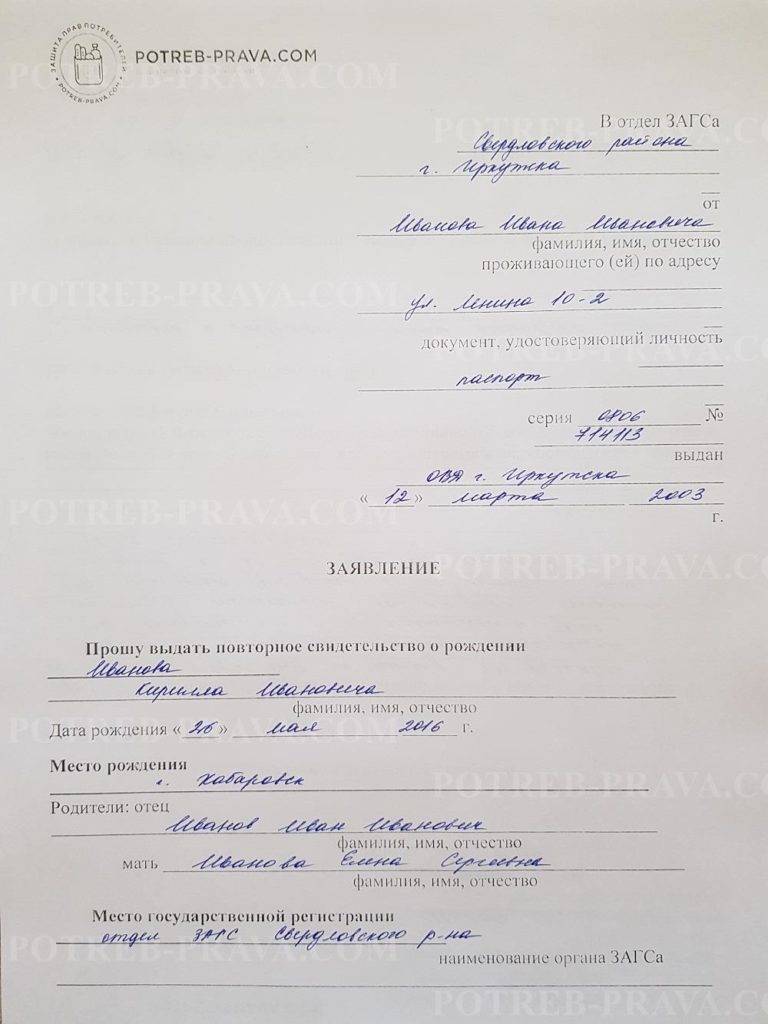 ЗАЩИТА ПРАВ ПОТРЕБИТЕЛЕЙ
POTREB-PRAVA.COM
POTREB-PRAVA.COM
В отдел ЗАГСа
Свердловского района
г. Иркутска
от
Иванова Ивана Ивановича
фамилия, имя, отчество
проживающего (ей) по адресу
ул. Ленина 10-2
документ, удостоверяющий личность
паспорт
серия 0806 №
714113
выдан
ОВД г. Иркутска
« 12 » марта 2003
г.
ЗАЯВЛЕНИЕ
Прошу выдать повторное свидетельство о рождении
Иванова
Кирилла Ивановича
фамилия, имя, отчество
Дата рождения « 26 » мая 2016 г.
Место рождения
г. Хабаровск
Родители: отец
Иванов Иван Иванович
фамилия, имя, отчество
мать Иванова Елена Сергеевна
фамилия, имя, отчество
Место государственной регистрации
отдел ЗАГС Свердловского р-на
наименование органа ЗАГСа